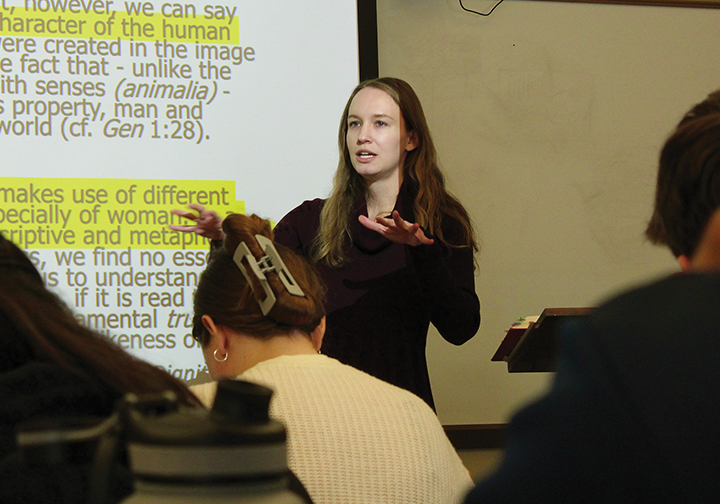 t, however, we can say
haracter of the human
ere created in the image
e fact that - unlike the
ith senses (animalia) -
s property, man and
world (cf. Gen 1:28).
makes use of different
pecially of woman,
criptive and metaph
s, we find no esse
us to understand
if it is read
amental tru
likeness o
Dignit